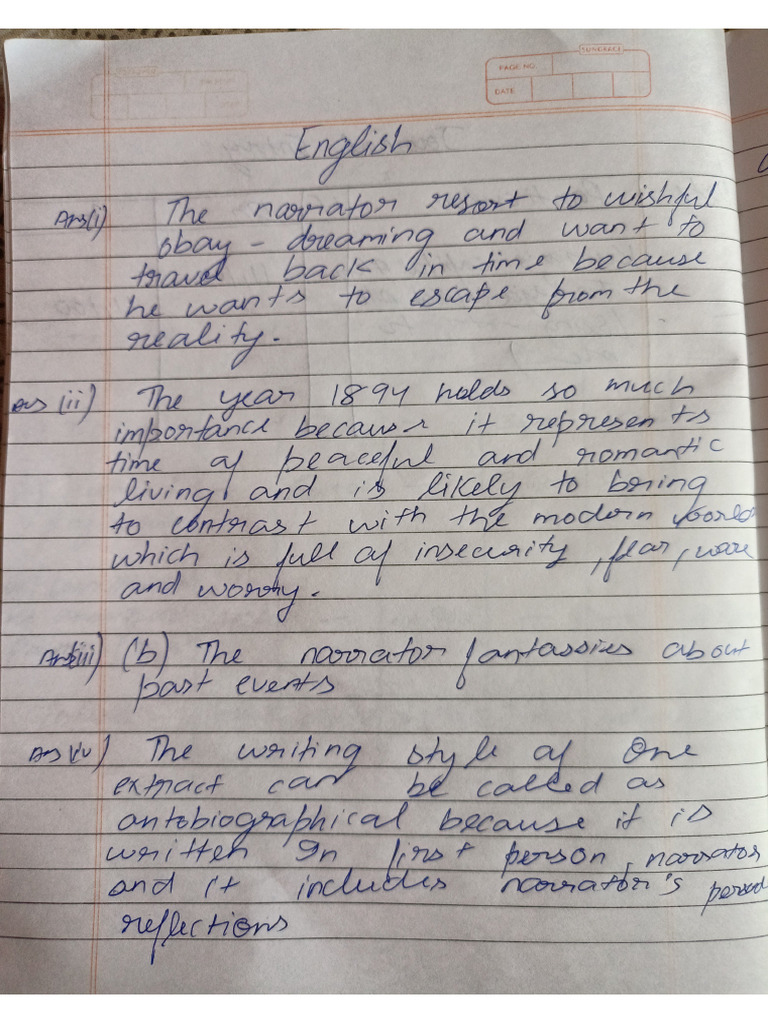 SUNGRACE
PAGE NO.
DATE
English
Ans(i) The narrator resort to wishful
obay - dreaming and want to
travel back in time because
he wants to escape from the
reality.
Ans (ii) The year 1894 holds so much
importance because it represents
time of peaceful and romantic
living and is likely to bring
to contrast with the modern world
which is full of insecurity, fear, ware
and worry.
Ans(iii) (b) The narrator fantassies about
past events
Ans(iv) The writing style of One
extract can be called as
autobiographical because it is
written In first person narrator
and it includes narrator's
reflections